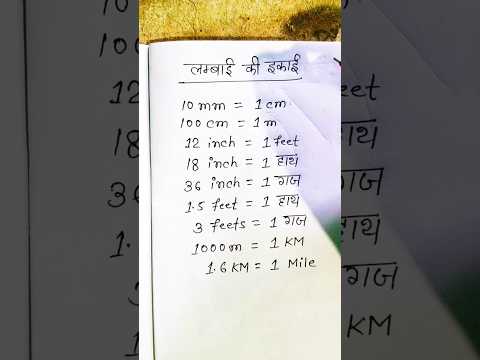 लम्बाई की इकाई
10 mm = 1 cm.
100 cm = 1 m
12 inch = 1 feet
18 inch = 1 हाथ
36 inch = 1 गज
1.5 feet = 1 हाथ
3 feets = 1 गज
1000m = 1 KM
1.6 KM = 1 Mile